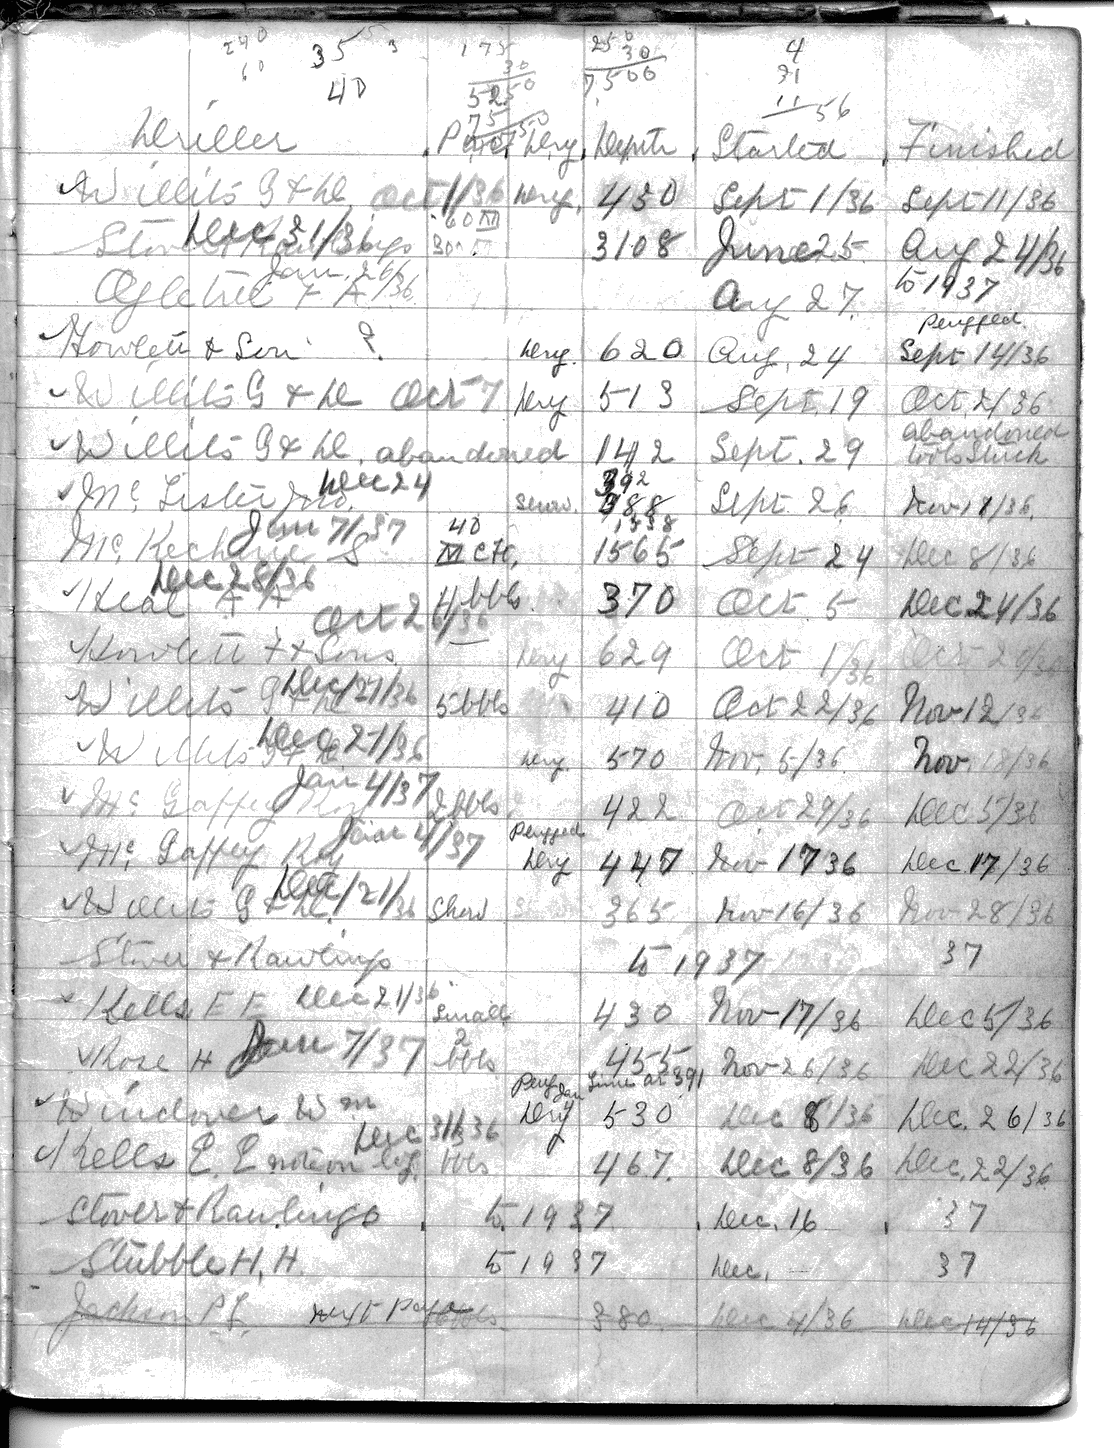 240 35 3 175 250 4
60 40 30 30 91
5250 7500 11 56
75
Driller Prod Dry Depth Started Finished
Willits G & D. Oct 1/36 Dry. 430 Sept 1/36 Sept 11/36
Dec 31/36 60 M
Stover & Rawlings 300 M 3108 June 25 Aug 24/36
Jan. 26/36
Ogletree F A Aug 27. to 1937
plugged
Howlett & Son ? Dry. 620 Aug. 24 Sept 14/36
Willits G & D Oct 7 Dry 513 Sept. 19 Oct 2/36
Willits G & D. abandoned 142 Sept. 29 abandoned tools Stuck
Dec 24 392
Mc Lister Show. 388 Sept 26 Nov 11/36.
Jan 7/37 40 1338
Mc Kechnie S M CH. 1565 Sept 24 Dec 8/36
Dec 28/36
Heal F A 4 bbls 370 Oct 5 Dec 24/36
Oct 26/36
Howlett F & Sons Dry 629 Oct 1/36 Oct 20/36
Dec/21/36
Willits G & D 5 bbls 410 Oct 22/36 Nov 12/36
Dec 21/36
Willits G & D Dry. 570 Nov. 5/36. Nov. 18/36
Jan 4/37
Mc Gaffey Roy 2 bbls 422 Oct 29/36 Dec 5/36
Jan 4/37 Plugged
Mc Gaffey Roy Dry 447 Nov 17 36 Dec. 17/36
Dec/21/36
Willits G & D. Show 365 Nov 16/36 Nov 28/36
Stover & Rawlings to 1937 37
Kells E E Dec 21/36 Small 430 Nov 17/36 Dec 5/36
Rose H Jan 7/37 2 bbls 455 Nov 26/36 Dec 22/36
Plug Jan Lime at 391
Windover Wm Dry 530 Dec 8/36 Dec. 26/36
Dec 31/36
Kells E. E no log. bbls 467. Dec 8/36 Dec. 22/36
Stover & Rawlings to 1937 Dec. 16 37
Stubble H. H. to 1937 Dec. 37
Jackson P L next page bbls 380 Dec 4/36 Dec 14/36